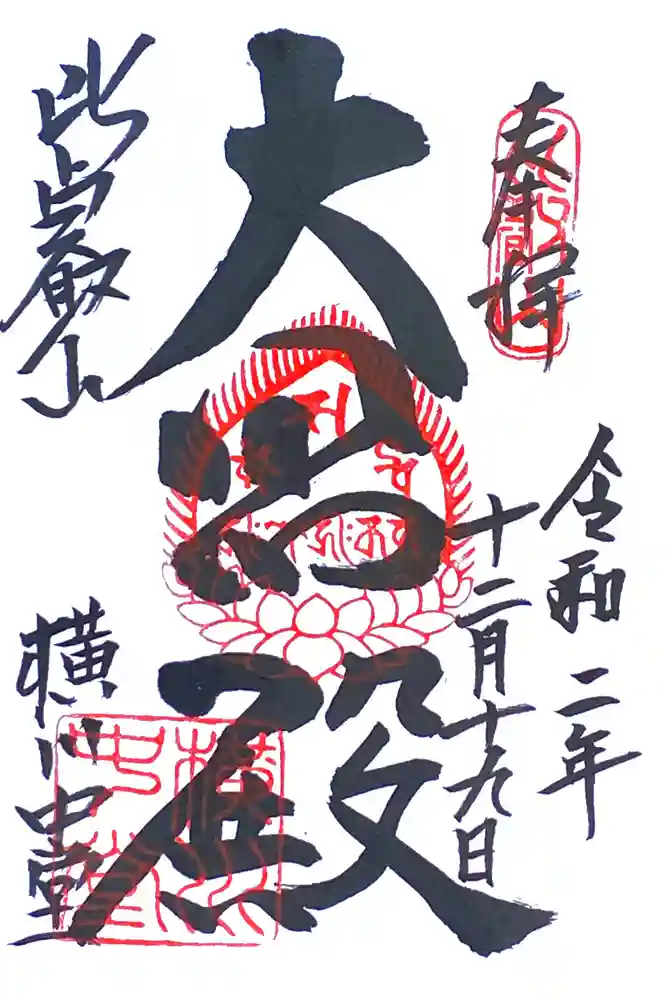 奉拝
令和二年
十二月十九日
大悲殿
比叡山
横川中堂
横川
中堂